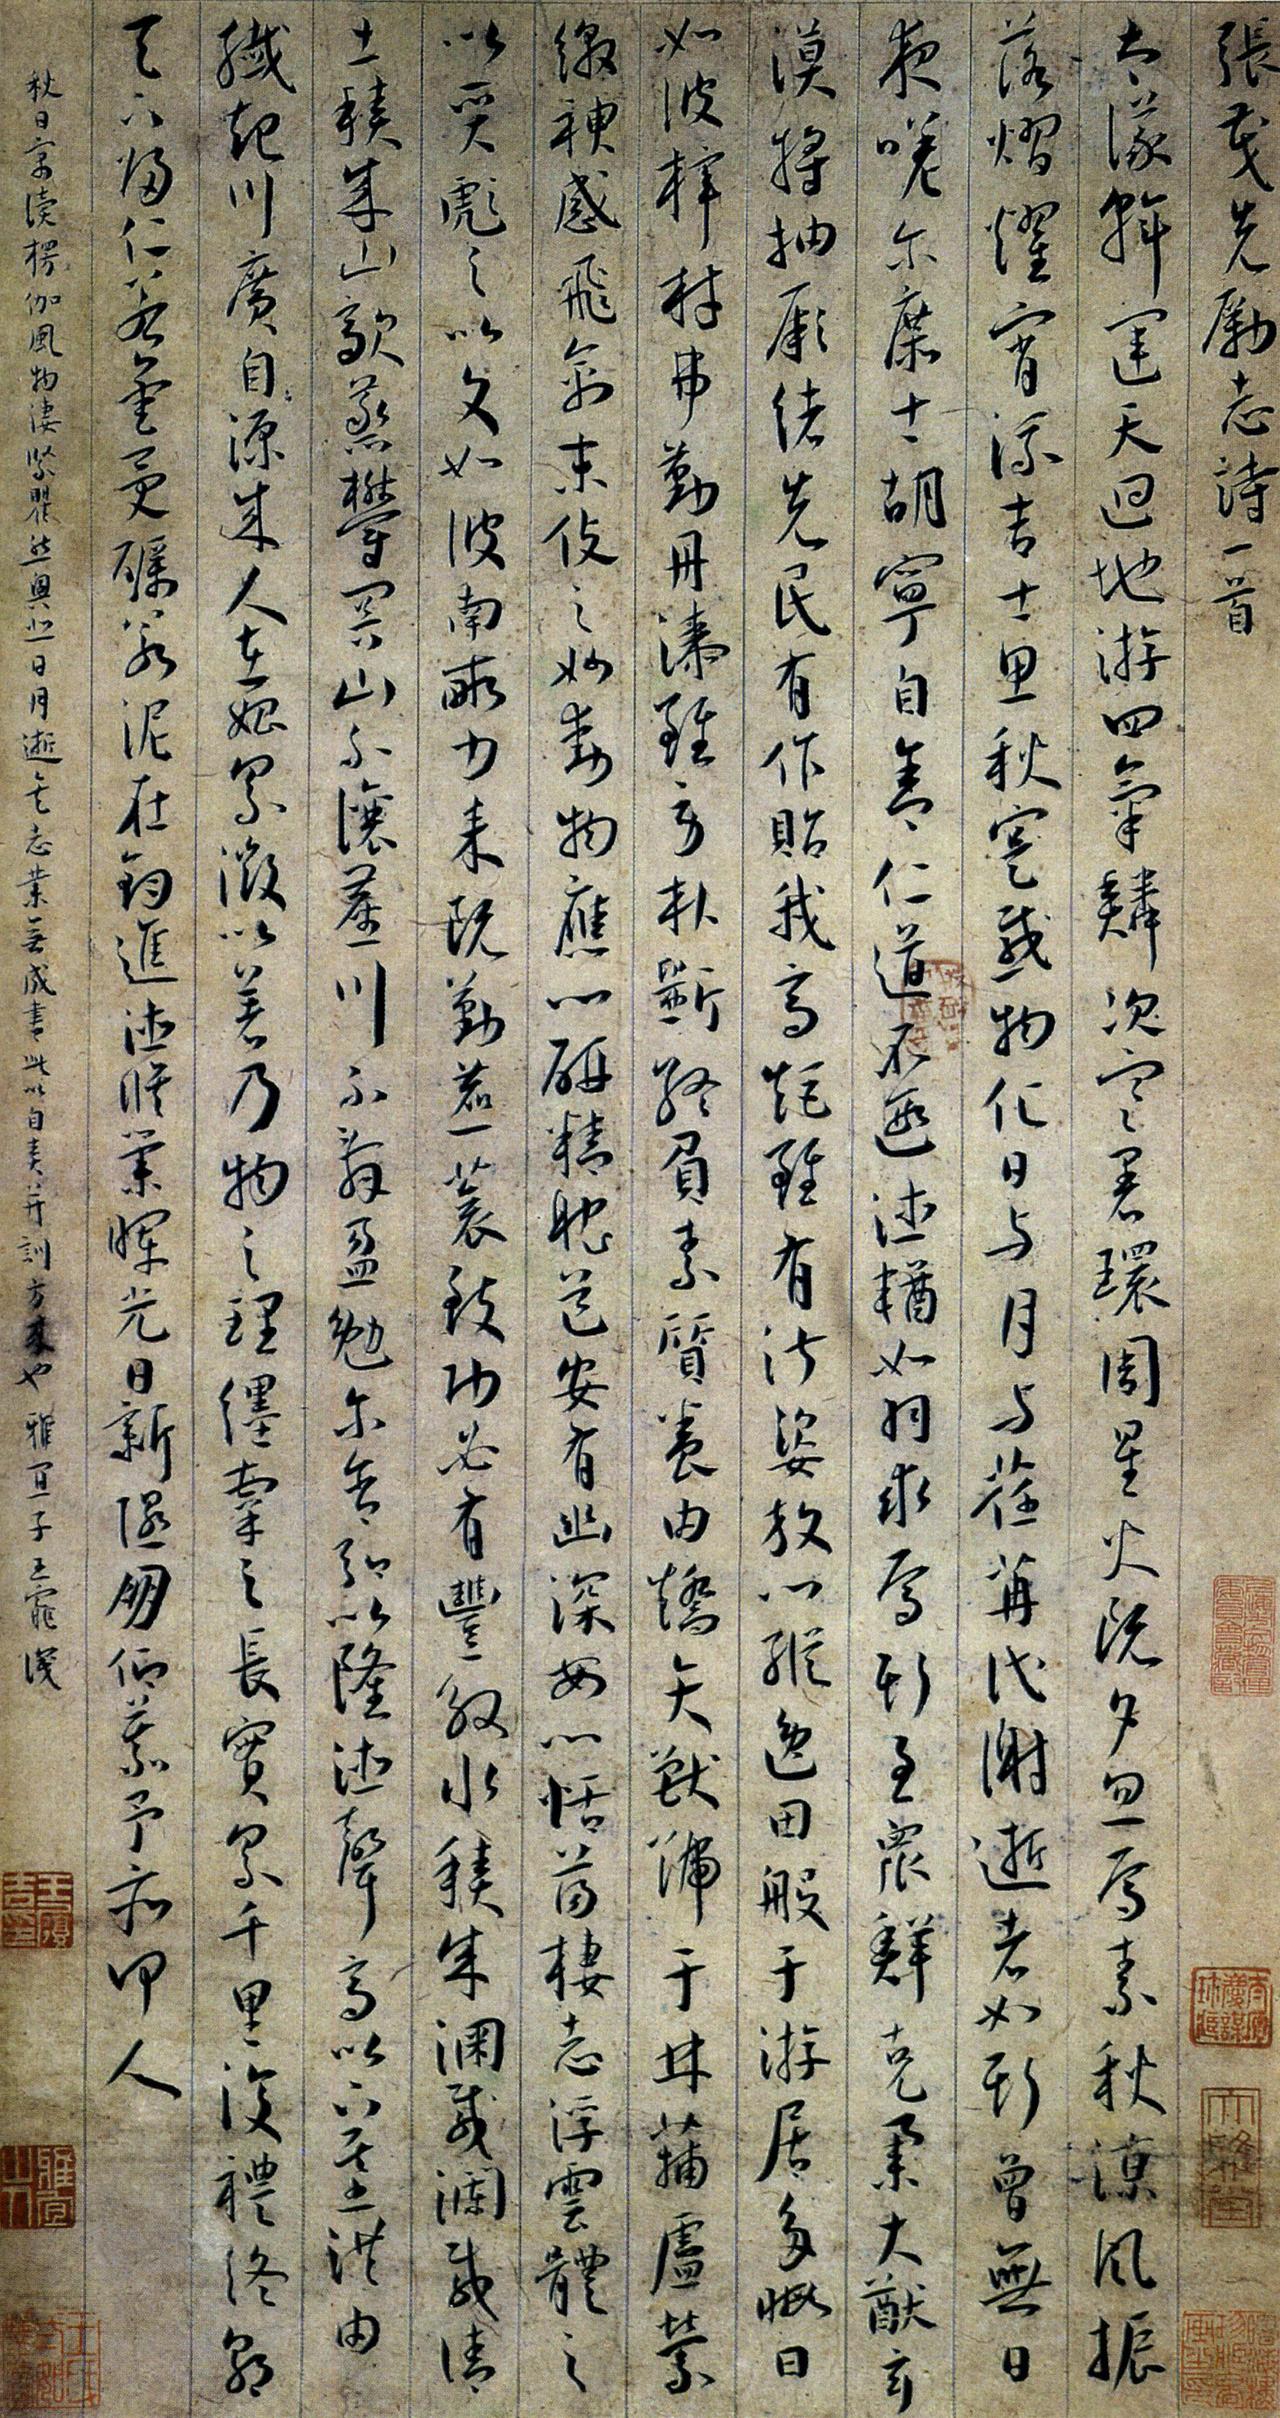 張茂先勵志詩一首
大儀斡運天迴地游四氣鱗次寒暑環周星火既夕忽焉素秋涼風振
落熠燿宵流吉士思秋寔感物化日与月与荏苒代謝逝者如斯曾無日
夜嗟尔庶士胡寧自舍仁道不遐德輶如羽求焉斯至眾鮮克舉大猷玄
漠將抽厥緒先民有作貽我高矩雖有淑姿放心縱逸田般于游居多暇日
如彼梓材弗勤丹漆雖勞朴斲終負素質養由矯矢獸號于林蒲盧縈
繳神感飛禽末伎之妙動物應心研精耽道安有幽深安心恬蕩棲志浮雲體之
以質彪之以文如彼南畝力耒既勤藨蓘致功必有豐殷水積成淵載瀾載清
土積成山歊蒸鬱冥山不讓塵川不辭盈勉尔含弘以隆德聲高以下基洪由
纖起川廣自源成人在始累微以著乃物之理纆牽之長實累千里復禮終朝
天下歸仁若金受礪若泥在鈞進德修業暉光日新隰朋仰慕予亦何人
秋日宗讀楞伽風物淒緊瞿然興悲日月逝矣志業無成書此以自責并訓方來也 雅宜子王寵識